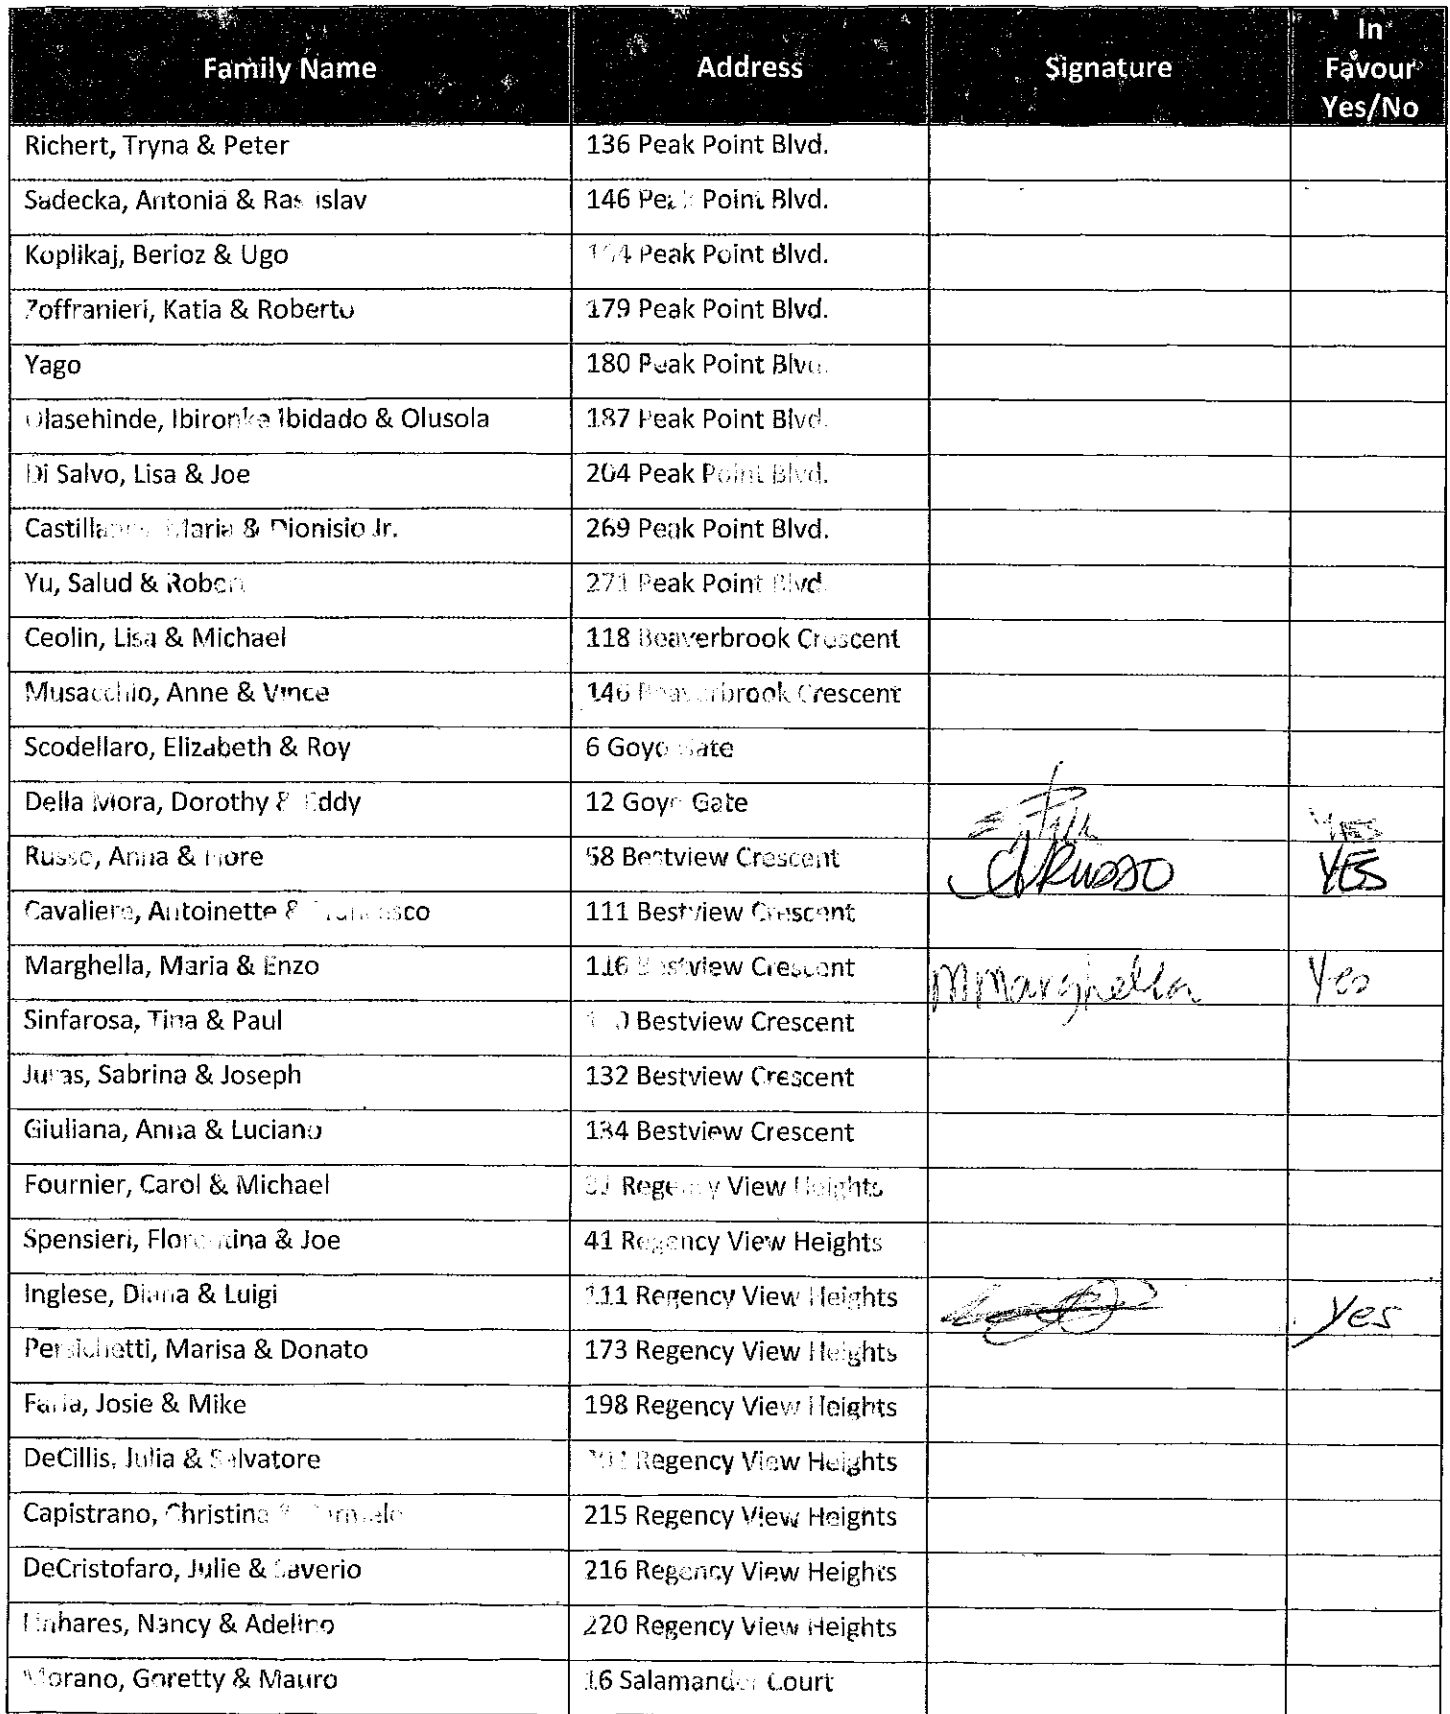 Family Name Address Signature In Favour Yes/No
Richert, Tryna & Peter 136 Peak Point Blvd.
Sadecka, Antonia & Point Blvd.
Koplikaj, Berioz & Ugo Peak Point Blvd.
Zoffranieri, Katia & Roberto 179 Peak Point Blvd.
Yago 180 Peak Point Blvd.
Olasehinde, Ibironke Ibidado & Olusola 187 Peak Point Blvd.
Di Salvo, Lisa & Joe 204 Peak Point Blvd.
Maria & Dionisio Jr. 269 Peak Point Blvd.
Yu, Salud & Robert 271 Peak Point Blvd.
Ceolin, Lisa & Michael 118 Beaverbrook Crescent
Musacchio, Anne & Vince 146 Beaverbrook Crescent
Scodellaro, Elizabeth & Roy 6 Goyo Gate
Della Mora, Dorothy & Eddy 12 Goyo Gate YES
Russo, Anna & Fiore 58 Bestview Crescent ARUSSO YES
Cavaliere, Antoinette & Francesco 111 Bestview Crescent
Marghella, Maria & Enzo 116 Bestview Crescent MMarghella Yes
Sinfarosa, Tina & Paul Bestview Crescent
Juras, Sabrina & Joseph 132 Bestview Crescent
Giuliana, Anna & Luciano 134 Bestview Crescent
Fournier, Carol & Michael Regency View Heights
Spensieri, Florentina & Joe 41 Regency View Heights
Inglese, Diana & Luigi 111 Regency View Heights Yes
Persichetti, Marisa & Donato 173 Regency View Heights
Faria, Josie & Mike 198 Regency View Heights
DeCillis, Julia & Salvatore Regency View Heights
Capistrano, Christina & 215 Regency View Heights
DeCristofaro, Julie & Saverio 216 Regency View Heights
Linhares, Nancy & Adelino 220 Regency View Heights
Morano, Goretty & Mauro 16 Salamander Court